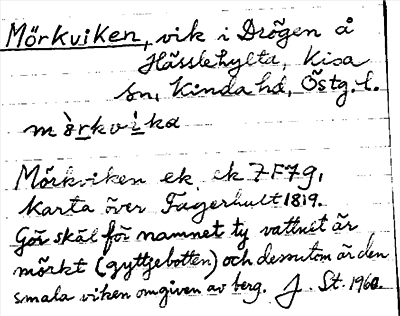 Mörkviken, vik i Drögen å
Hässlehylta, Kisa
sn, Kinda hd, Östg. l.
mörkvika
Mörkviken ek. ek 7F7g,
Karta över Fagerhult 1819.
Gör skäl för namnet ty vattnet är
mörkt (gyttjebotten) och dessutom är den
smala viken omgiven av berg. J. St. 1960.